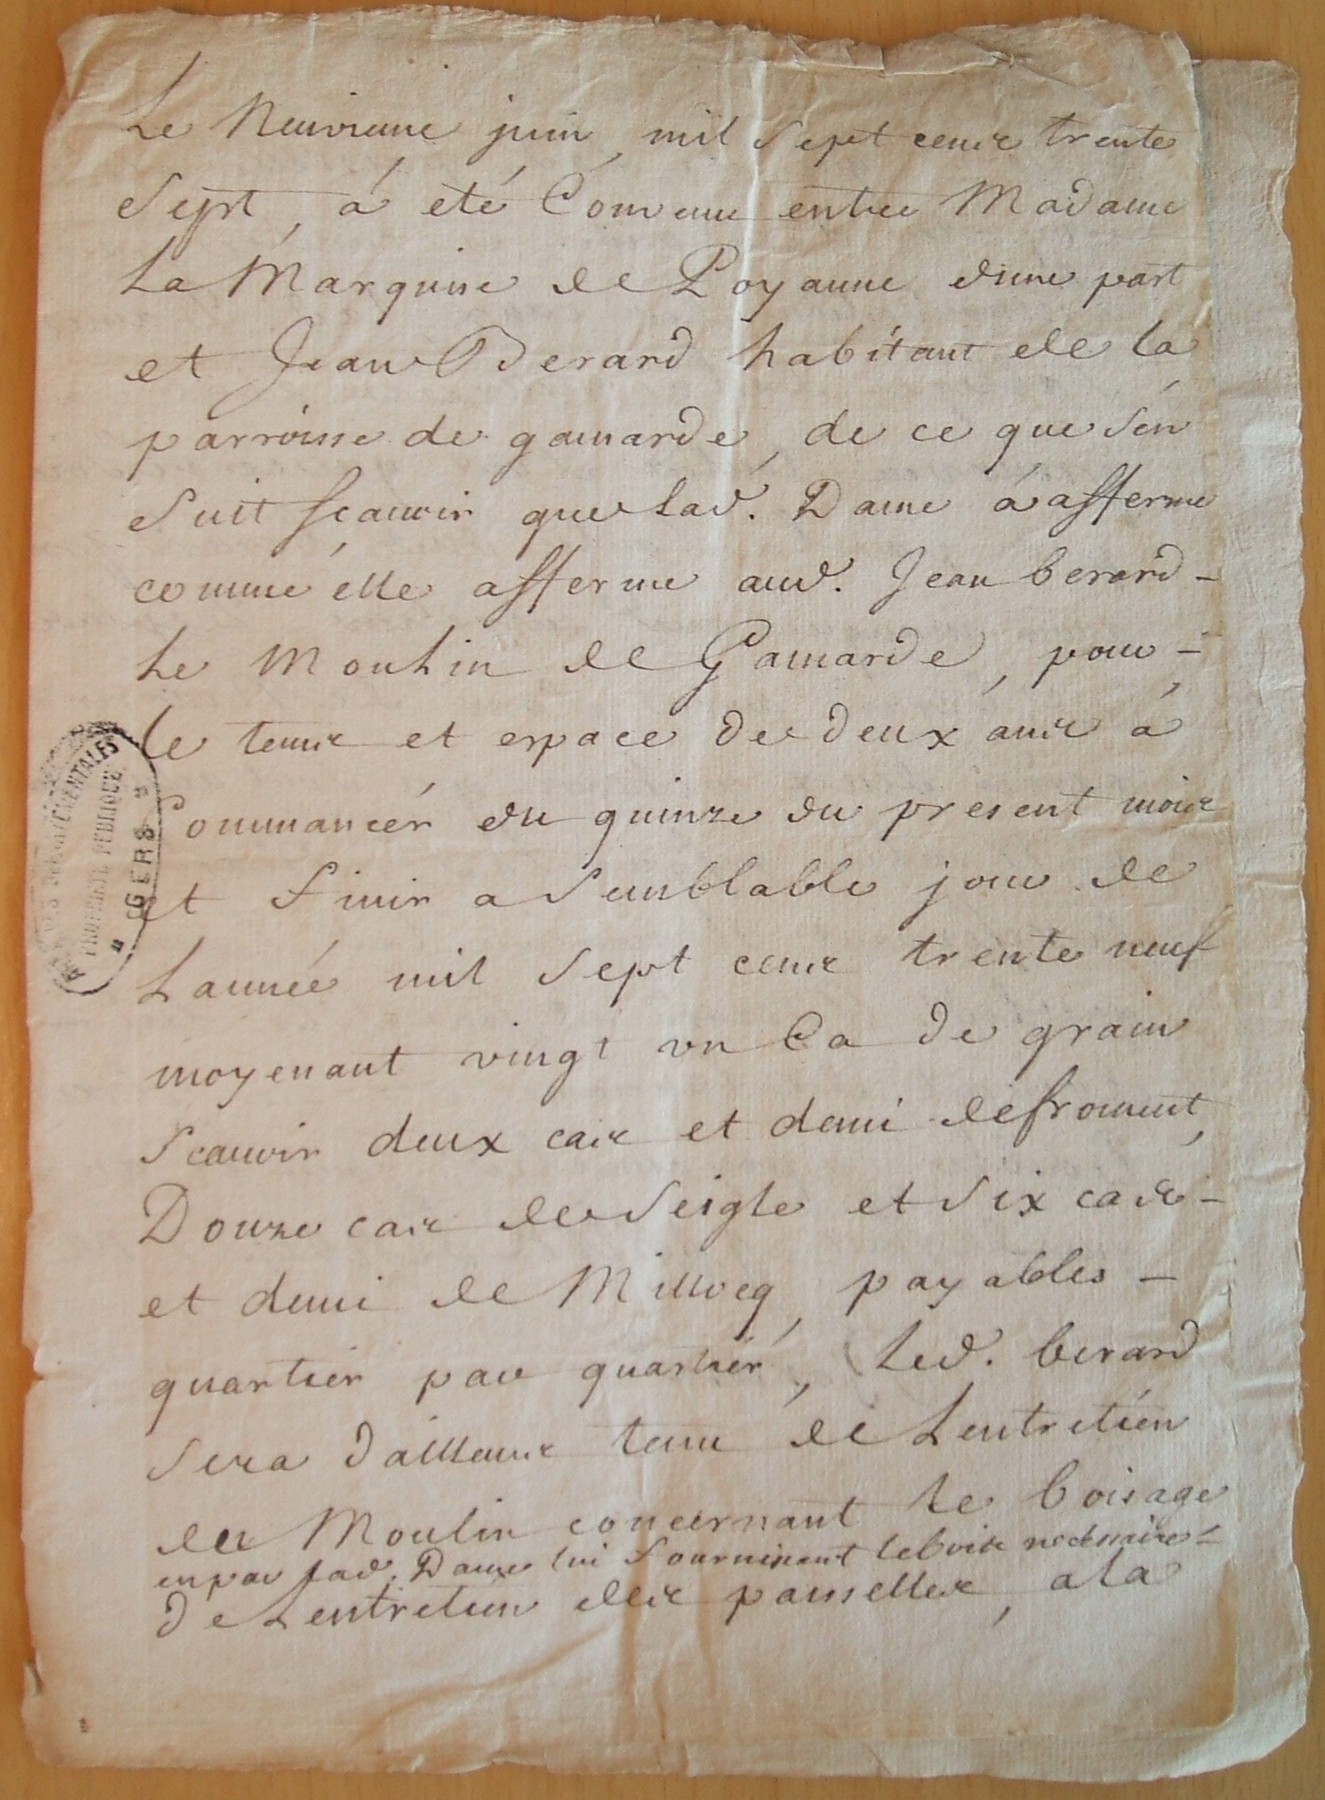 Le Neuvieme juin, mil sept cens trente
sept, á eté Convenu entre Madame
La Marquise de Poyanne d'une part
et Jean Berard habitant de la
parroisse de gamarde, de ce que sén
suit sçauoir que lad. Dame á afferme
comme élle afferme aud. Jean berard -
Le Moulin de Gamarde, pour -
le tems et espace de deux ans á
Commancér du quinze du present mois
et finir a semblable jour de
Lannée mil sept cens trente neuf
moyenant vingt vn Ca de grain
scauoir deux cas et demi de froment,
Douze cas de seigle et six cas -
et demi de Millocq, payables -
quartier par quartiér, Led. berard
sera dailleurs tenu de Lentretién
du Moulin concernant le boisage
en par lad. Dame lui fournissant le bois necessaire -
de Lentretien des paisselles, a la
ARCHIVES DÉPARTEMENTALES
PROPRIÉTÉ PUBLIQUE
GERS